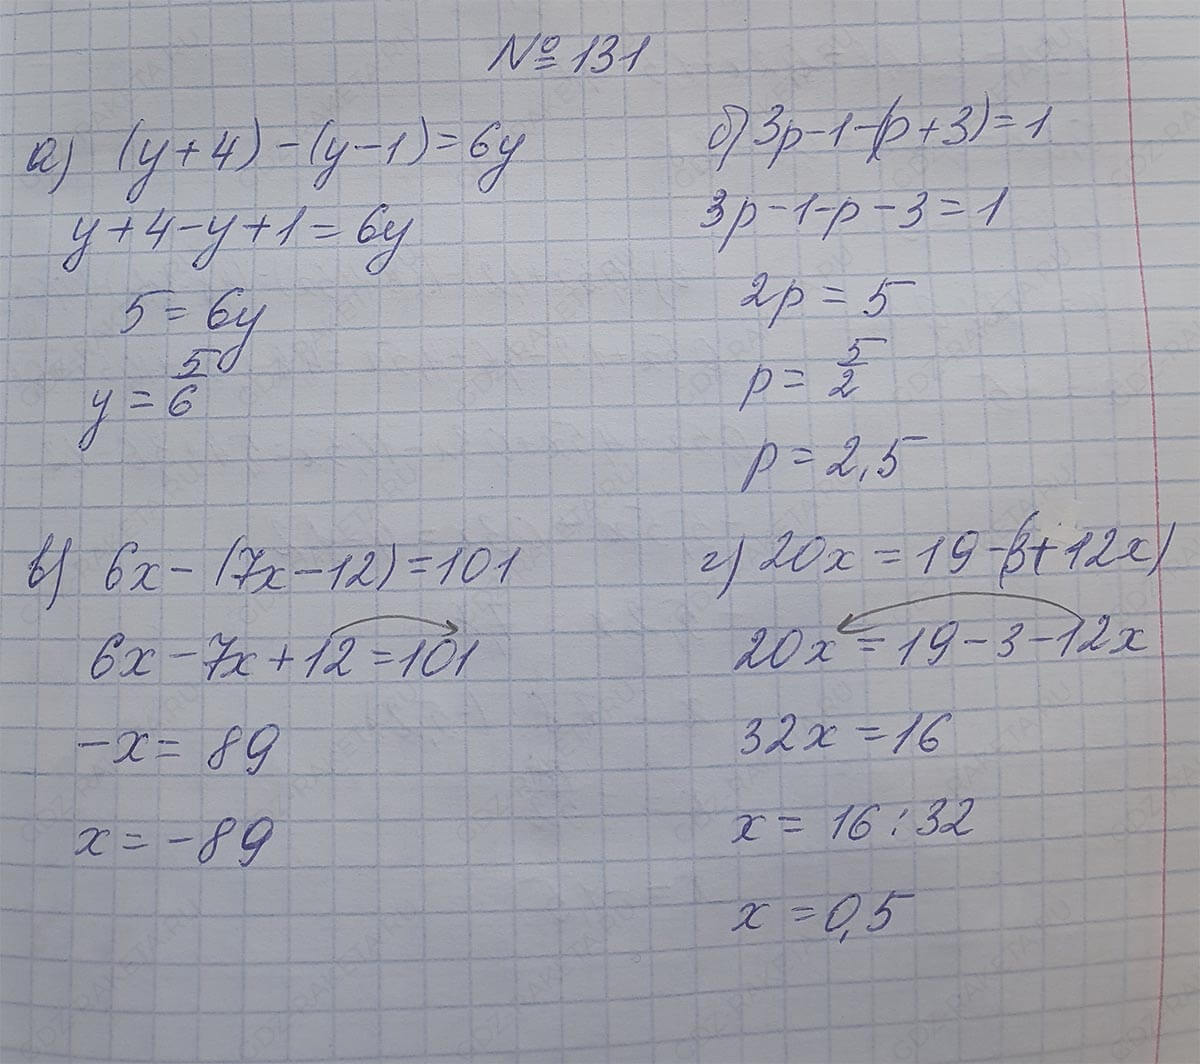 № 131
а) (y+4)-(y-1)=6y
y+4-y+1=6y
5=6y
y=5/6
б) 3p-1-(p+3)=1
3p-1-p-3=1
2p=5
p=5/2
p=2,5
в) 6x-(7x-12)=101
6x-7x+12=101
-x=89
x=-89
г) 20x=19-(3+12x)
20x=19-3-12x
32x=16
x=16:32
x=0,5